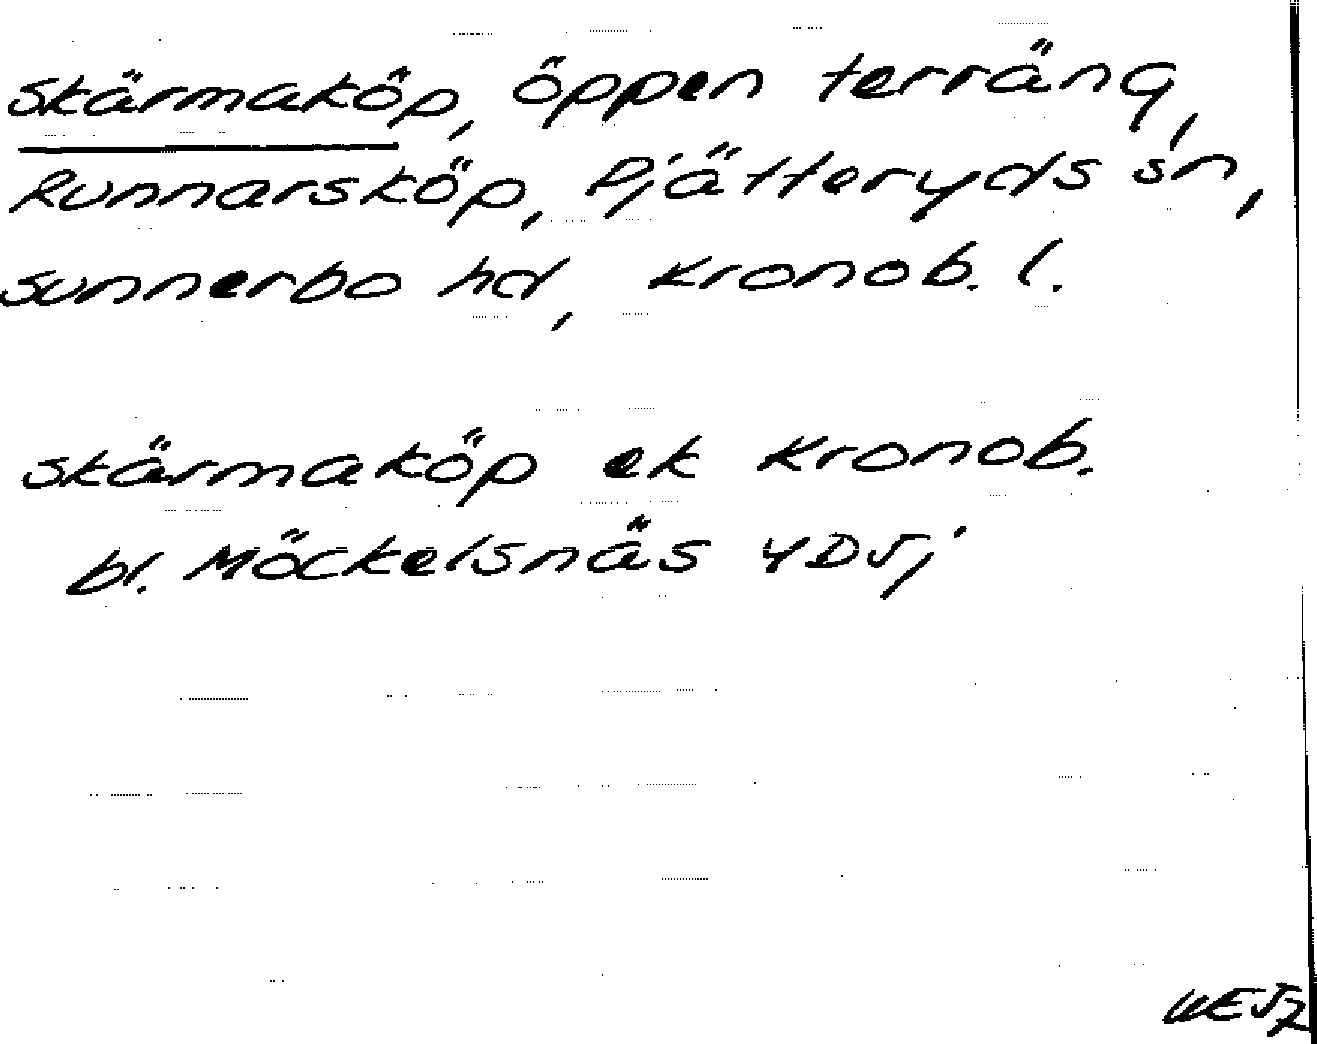 Skärmaköp, öppen terräng,
Runnarsköp, Pjätteryds sn,
Sunnerbo hd, Kronob. l.
Skärmaköp ek Kronob.
bl. Möckelsnäs 4DSj